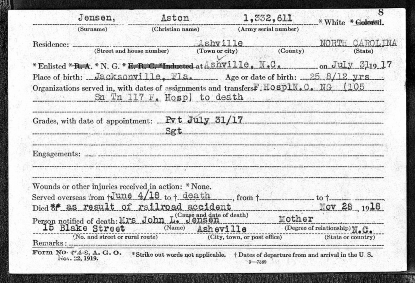 8
Jensen, Aston 1,332,611 * White * Colored.
(Surname) (Christian name) (Army serial number)
Residence: Ashville NORTH CAROLINA
(Street and house number) (Town or city) (County) (State)
* Enlisted * R. A. * N. G. * E. R. C. * Inducted at Ashville, N.C. on July 31, 19 17
Place of birth: Jacksonville, Fla. Age or date of birth: 25 8/12 yrs
Organizations served in, with dates of assignments and transfers: F Hosp1N.C. NG (105
Sn Tn 117 F. Hosp) to death
Grades, with date of appointment: Pvt July 31/17
Sgt
Engagements:
Wounds or other injuries received in action: * None.
Served overseas from † June 4/18 to † death, from † to †
Died of as result of railroad accident Nov 28, 1918
(Cause and date of death)
Person notified of death: Mrs John L. Jensen Mother
(Name) (Degree of relationship)
15 Blake Street Asheville N.C.
(No. and street or rural route) (City, town, or post office) (State or country)
Remarks:
Form No. A. G. O. *Strike out words not applicable. † Dates of departure from and arrival in the U. S.
Nov. 12, 1919.